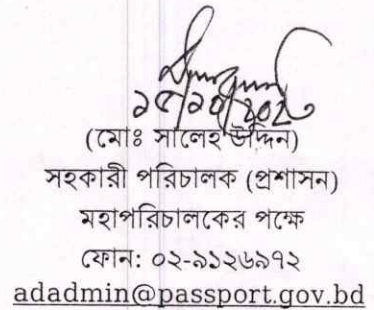 ১৫/১০/২০২০
(মোঃ সালেহ উদ্দিন)
সহকারী পরিচালক (প্রশাসন)
মহাপরিচালকের পক্ষে
ফোন: ০২-৯১২৬৯৭২
adadmin@passport.gov.bd